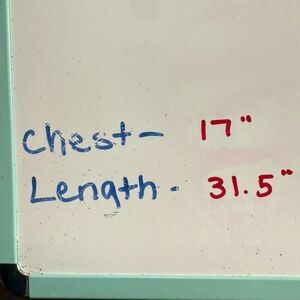 Chest- 17"
Length- 31.5"